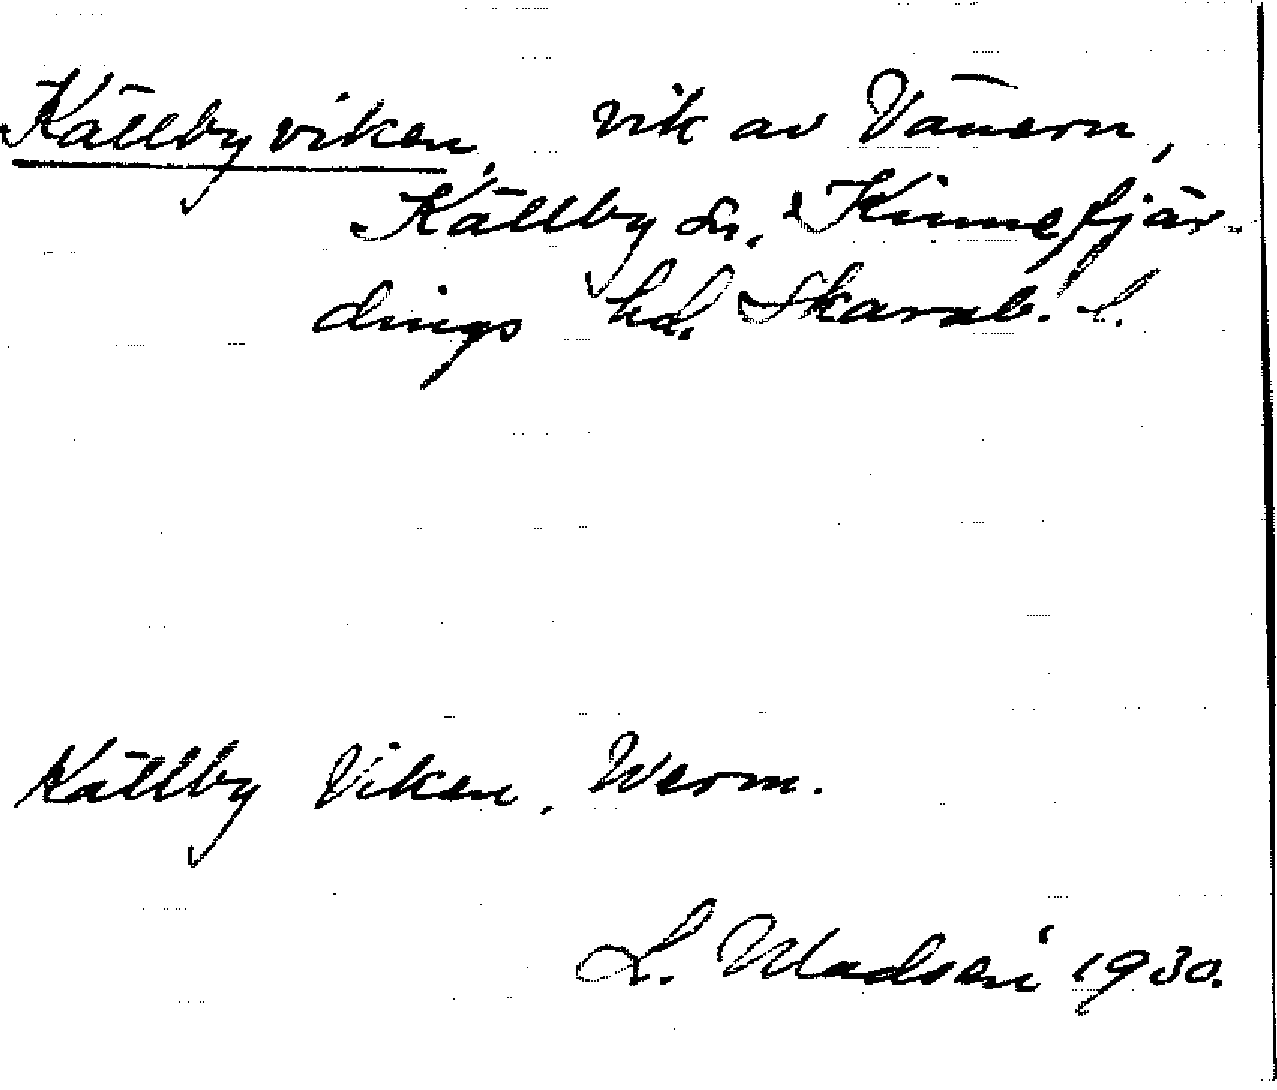 Källbyviken, vik av Vänern,
Källby sn, Kinnefjär-
dings hd. Skarab. l.
Källby Viken. Werm.
L. Madsén 1930.